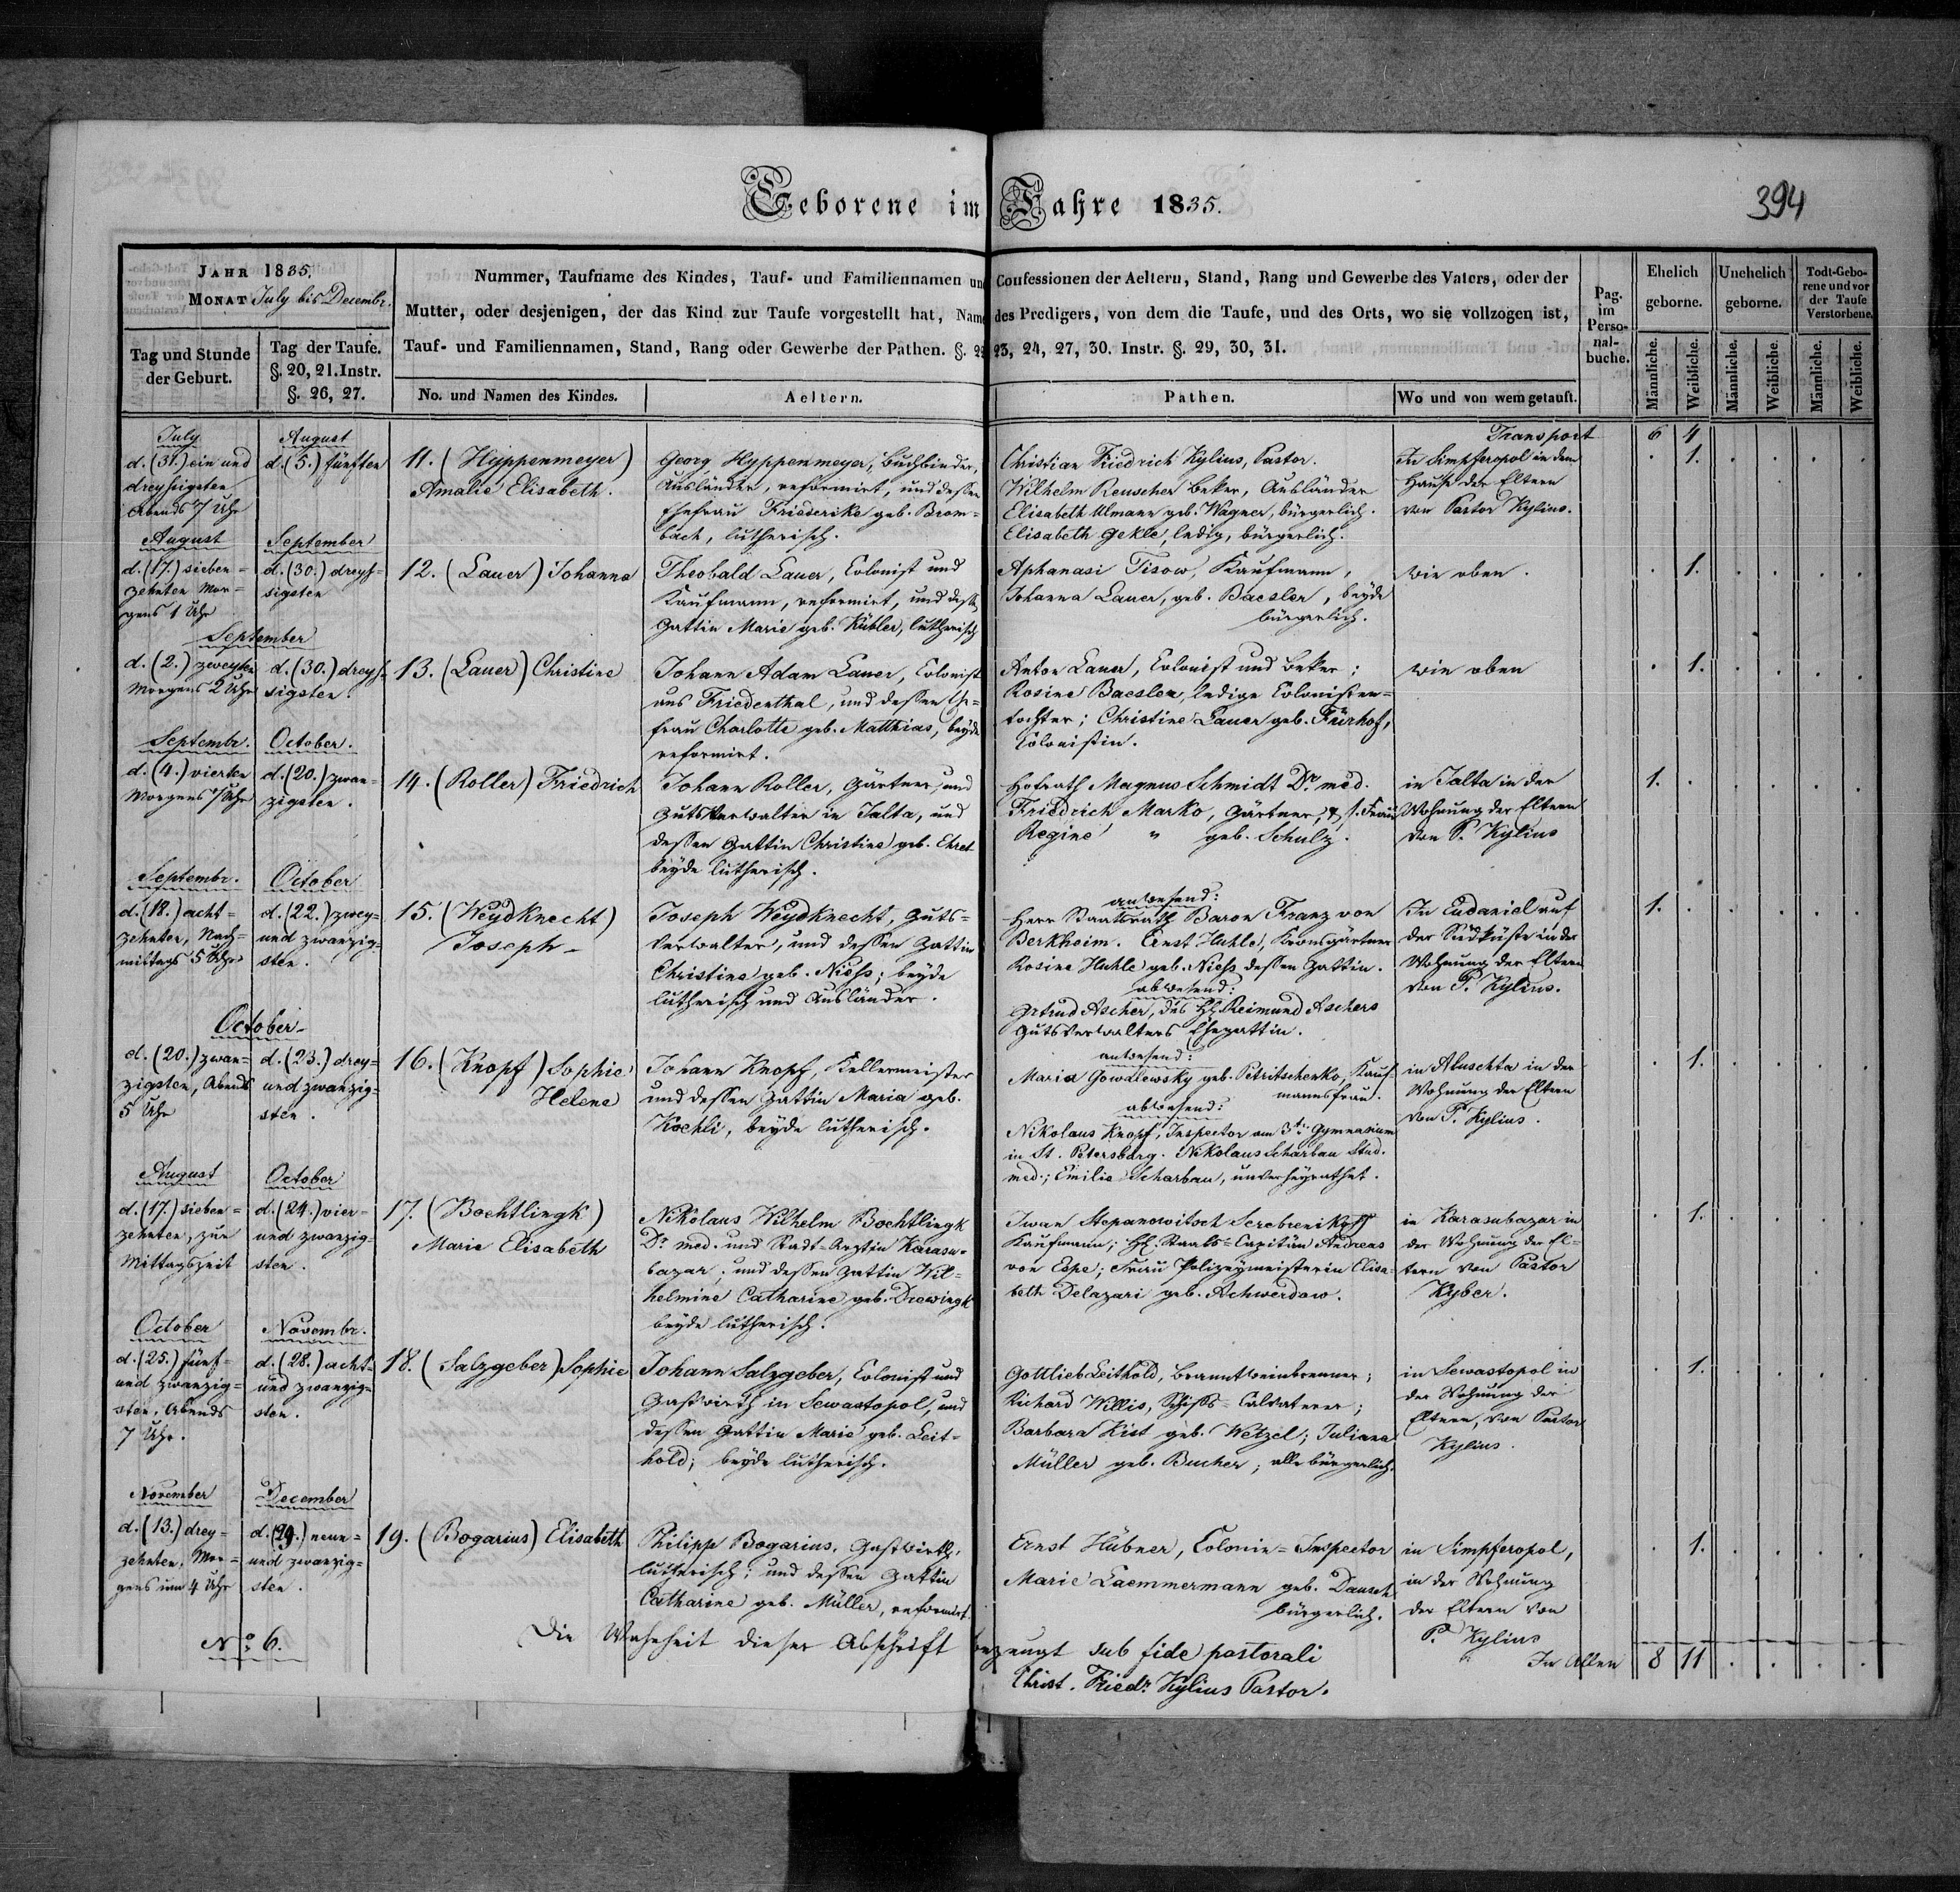 Geborene im Jahre 1835.
394
JAHR 1835.
MONAT July bis Decembr.
Nummer, Taufname des Kindes, Tauf- und Familiennamen und Confessionen der Aeltern, Stand, Rang und Gewerbe des Vaters, oder der
Mutter, oder desjenigen, der das Kind zur Taufe vorgestellt hat, Name des Predigers, von dem die Taufe, und des Orts, wo sie vollzogen ist,
Tauf- und Familiennamen, Stand, Rang oder Gewerbe der Pathen. §. 23, 24, 27, 30. Instr. §. 29, 30, 31.
Tag und Stunde
der Geburt.
Tag der Taufe.
§. 20, 21. Instr.
§. 26, 27.
No. und Namen des Kindes.
Aeltern.
Pathen.
Wo und von wem getauft.
Pag.
im
Perso-
nal-
buche.
Ehelich
geborne.
Unehelich
geborne.
Todt-Gebo-
rene und vor
der Taufe
Verstorbene.
Männliche.
Weibliche.
Männliche.
Weibliche.
Männliche.
Weibliche.
Transport 6 4
July
d. (31.) ein und
dreyßigsten
Abends 7 Uhr
August
d. (5.) fünften
11. (Hyppenmeyer)
Amalie Elisabeth.
Georg Hyppenmeyer, Buchbinder,
Ausländer, reformirt, und dessen
Ehefrau Friederike geb. Brom-
bach, lutherisch.
Christian Friedrich Kylius, Pastor.
Wilhelm Reuscher Beker, Ausländer
Elisabeth Ulmann geb. Wagner, bürgerlich.
Elisabeth Gekle, ledig, bürgerlich.
In Simpferopol in dem
Hause der Eltern
von Pastor Kylius.
1.
August
d. (17.) sieben-
zehnten Mor-
gens 1 Uhr
September
d. (30.) dreyß-
sigsten
12. (Lauer) Johanna
Theobald Lauer, Colonist und
Kaufmann, reformirt, und dess.
Gattin Marie geb. Kübler, lutherisch
Aphanasi Tisow, Kaufmann,
Johanna Lauer, geb. Baesler, beyde
bürgerlich.
wie oben.
1.
September
d. (2.) zweyten
Morgens 2 Uhr
d. (30.) dreyß-
sigsten.
13. (Lauer) Christine
Johann Adam Lauer, Colonist
aus Friedenthal, und dessen Ehe-
frau Charlotte geb. Matthias, beyde
reformirt.
Anton Lauer, Colonist und Beker;
Rosine Baesler, ledige Colonisten-
tochter; Christine Lauer geb. Fürhof,
Colonistin.
wie oben
1.
Septembr.
d. (4.) vierten
Morgens 7 Uhr
October.
d. (20.) zwan-
zigsten.
14. (Roller) Friedrich
Johann Roller, Gärtner, und
Gutsverwalter in Jalta, und
dessen Gattin Christine geb. Ehret
beyde lutherisch.
Hofrath Magnus Schmidt Dr. med.
Friedrich Marko, Gärtner, & s. Frau
Regine " geb. Schulz.
in Jalta in der
Wohnung der Eltern
von P. Kylius
1.
Septembr.
d. (18.) acht-
zehnten, Nach-
mittags 5 Uhr
October
d. (22.) zwey-
und zwanzig-
sten.
15. (Weydknecht)
Joseph
Joseph Weydknecht, Guts-
verwalter, und dessen Gattin
Christine geb. Niess; beyde
lutherisch und Ausländer.
anwesend:
Herr Staatsrath Baron Franz von
Berkheim. Ernst Huhle, Krongärtner
Rosine Huhle geb. Niess dessen Gattin.
abwesend:
Gertrud Ascher, des H. Reimund Aschers
Gutsverwalters Ehegattin.
In Cudaniel auf
der Südküste in der
Wohnung der Eltern
von P. Kylius.
1.
October
d. (20.) zwan-
zigsten, Abends
5 Uhr
d. (23.) drey-
und zwanzig-
sten.
16. (Knopf) Sophie
Helene
Johann Knopf, Kellermeister
und dessen Gattin Maria geb.
Kochli, beyde lutherisch.
anwesend:
Maria Gowalewsky geb. Petritschenko, Kauf-
mannsfrau.
abwesend:
Nikolaus Knopf, Inspector am 3ten Gymnasium
in St. Petersburg. Nikolaus Scharbau Stud.
med.; Emilie Scharbau, unverheyrathet.
in Aluschta in der
Wohnung der Eltern
von P. Kylius.
1.
August
d. (17.) sieben-
zehnten, zur
Mittagszeit
October
d. (24.) vier-
und zwanzig-
sten.
17. (Boehtlingk)
Marie Elisabeth
Nikolaus Wilhelm Boehtlingk
Dr. med. und Stadt-Arzt in Karasu-
bazar; und dessen Gattin Wil-
helmine Catharine geb. Drewingk
beyde lutherisch.
Iwan Stepanowitsch Serebrenikoff
Kaufmann; H. Staabs-Capitän Andreas
von Espe; Frau Polizeymeisterin Elisa-
beth Delazari geb. Achwerdow.
in Karasubazar in
der Wohnung der El-
tern von Pastor
Kyber.
1.
October
d. (25.) fünf-
und zwanzig-
sten, Abends
7 Uhr.
Novembr.
d. (28.) acht-
und zwanzig-
sten.
18. (Salzgeber) Sophie
Johann Salzgeber, Colonist und
Gastwirth in Sewastopol, und
dessen Gattin Marie geb. Leit-
hold; beyde lutherisch.
Gottlieb Leithold, Branntweinbrenner;
Richard Willis, Schiffs-Calvaterer;
Barbara Kist geb. Wetzel; Juliana
Müller geb. Bucher; alle bürgerlich.
in Sewastopol in
der Wohnung der
Eltern, von Pastor
Kylius.
1.
November
d. (13.) drey-
zehnten, Mor-
gens um 4 Uhr
December
d. (29.) neun-
und zwanzig-
sten.
19. (Bogarius) Elisabeth
Philipp Bogarius, Gastwirth,
lutherisch; und dessen Gattin
Catharine geb. Müller, reformirt.
Ernst Hübner, Colonie-Inspector
Marie Laemmermann geb. Dausch
bürgerlich.
in Simpferopol,
in der Wohnung
der Eltern von
P. Kylius
1.
No. 6.
Die Wahrheit dieser Abschrift bezeugt sub fide pastorali
Christ. Friedr. Kylius Pastor.
In Allen 8 11